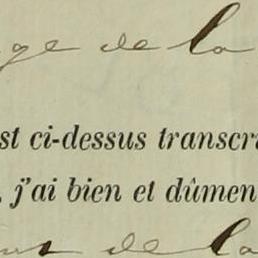 ge de la
st ci-dessus transcri
, j'ai bien et dûmen
de la